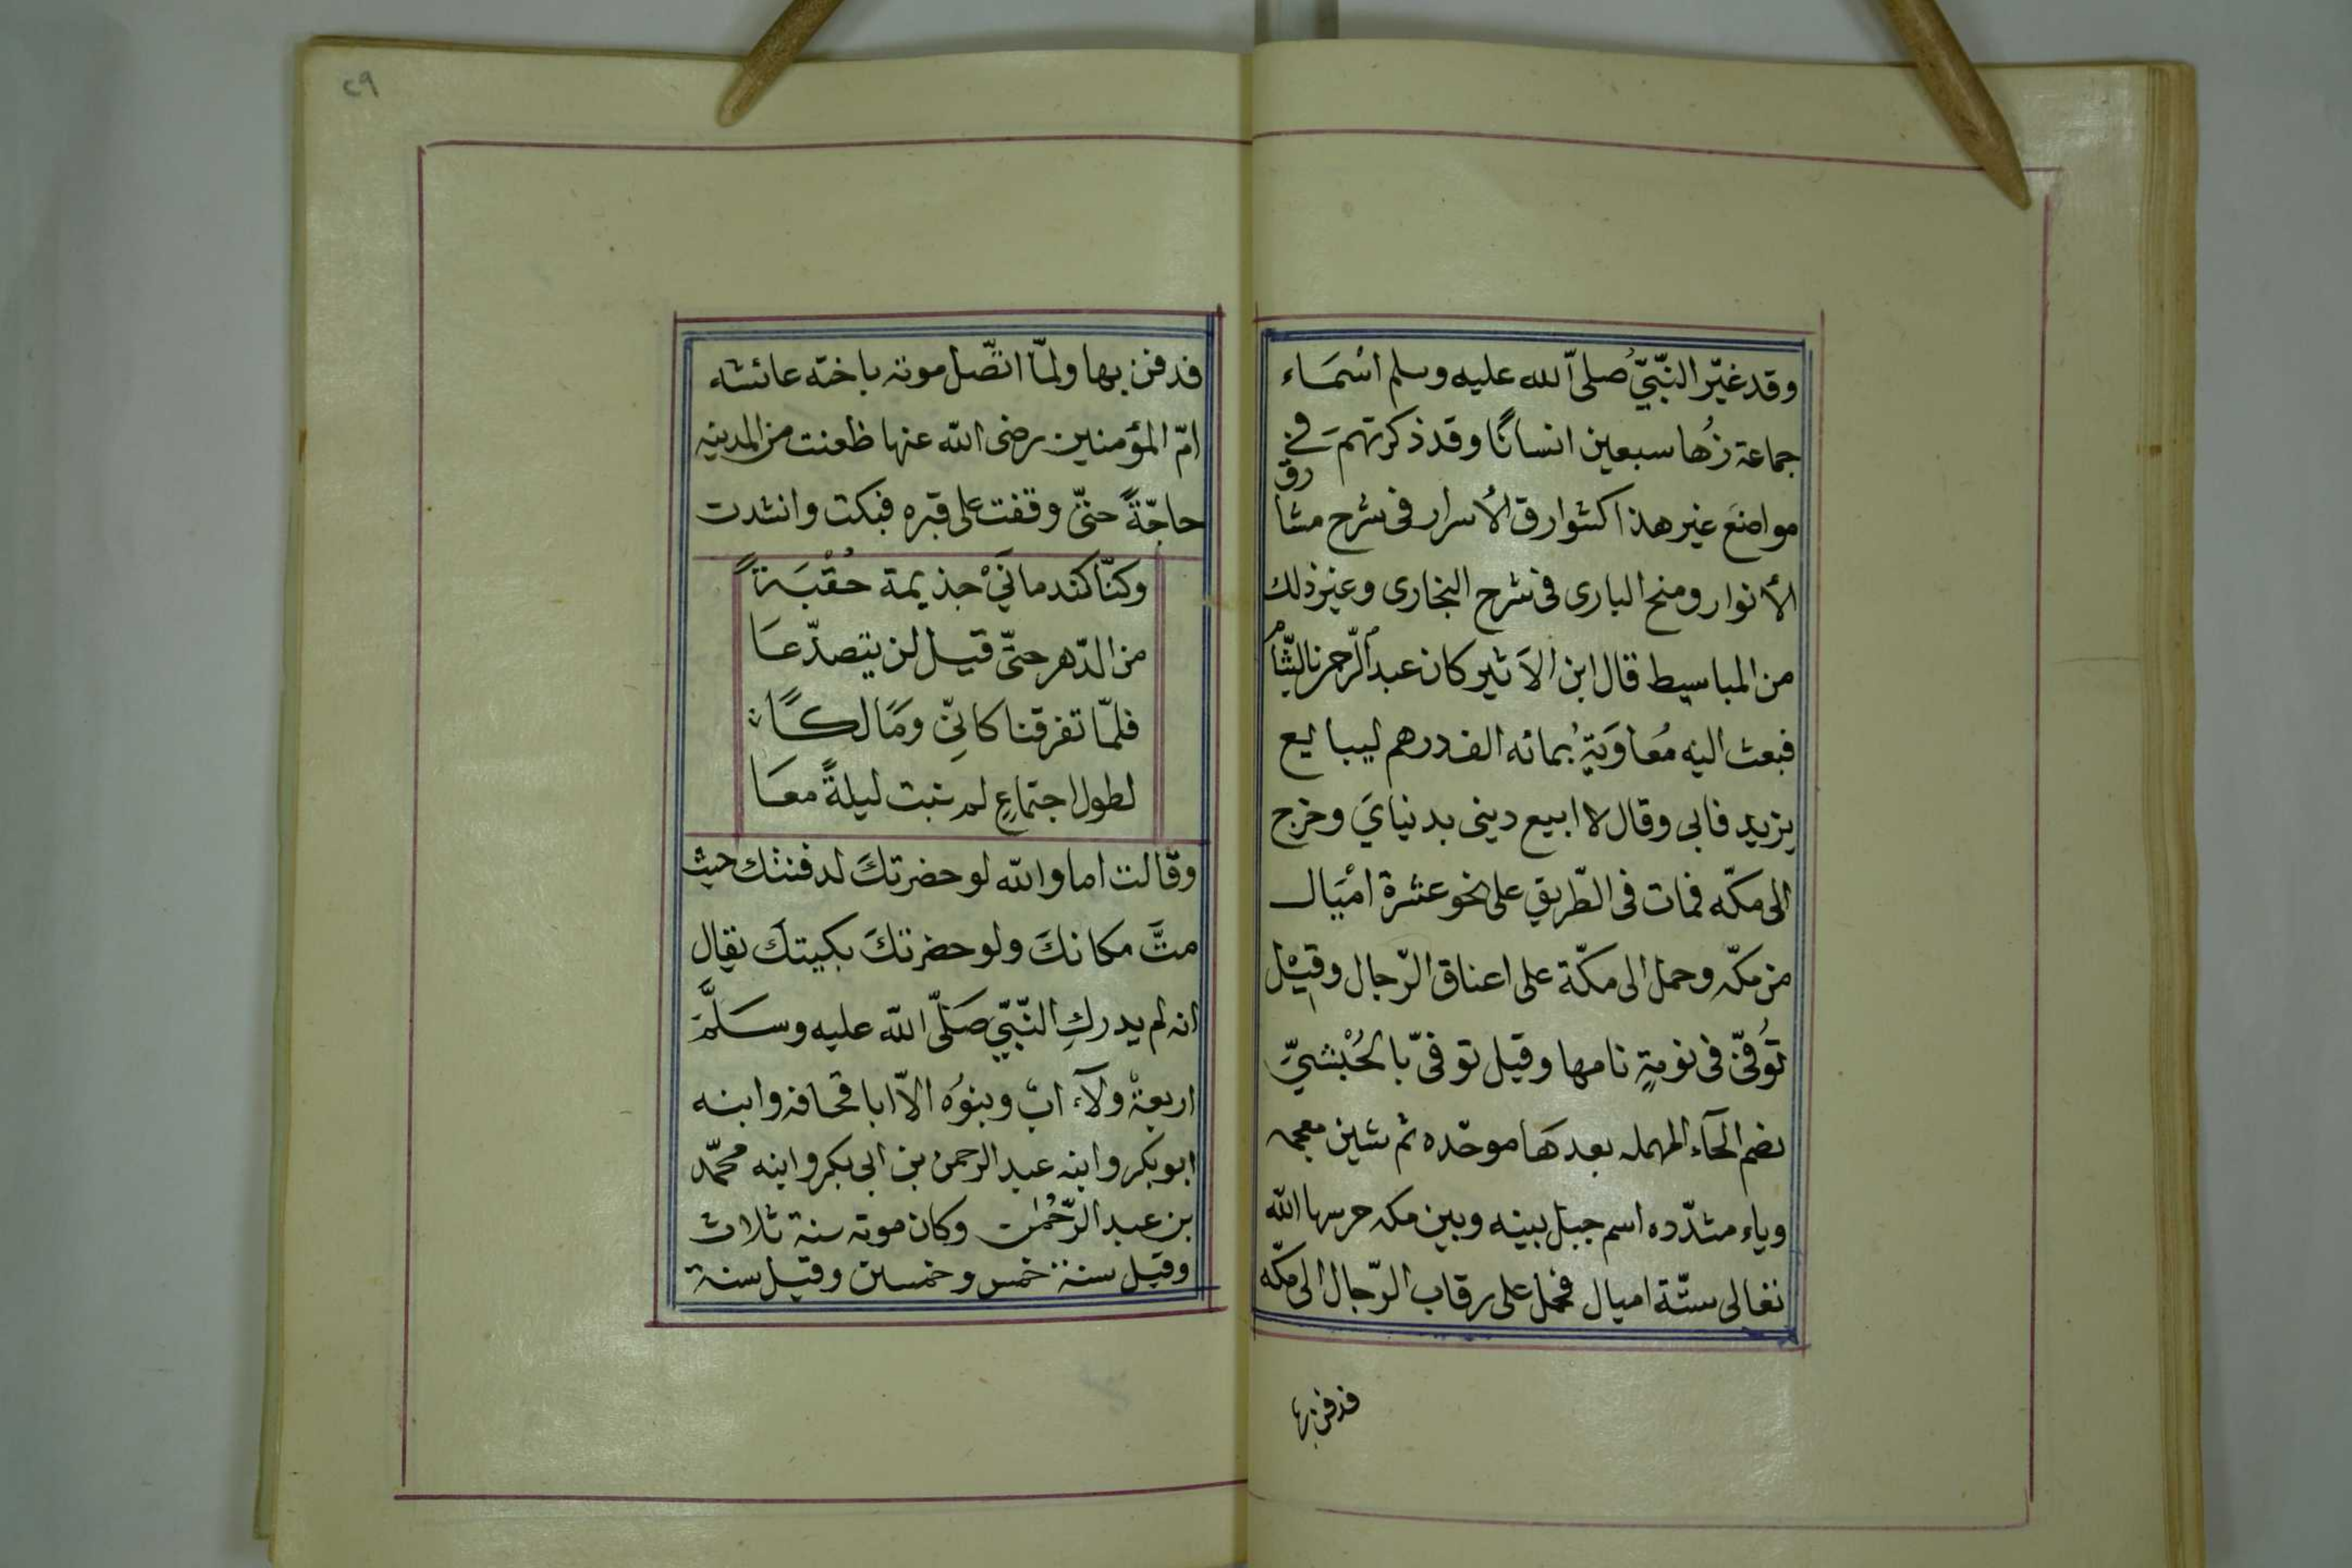 وقد غيّر النّبيّ صلى الله عليه وسلم اسْمَاء
جماعة زُهَا سبعين انسانًا وقد ذكرتهم في
مواضعَ غير هذا كشوارق الأسرار في شرح مشارق
الأنوار ومنح البارى فى شرح البخارى وغير ذلك
من المباسيط قال ابن الاَثير كان عبد الرّحمن بالشّام
فبعث اليه مُعَاوَيَةُ بمائه الف درهم ليبايع
يزيد فابى وقال لا ابيع دينى بدنيايَ وخرج
الى مكّه فمات فى الطّريق على نحو عشرة امْيَال
من مكّه وحمل الى مكّة على اعناق الرّجال وقيْل
تُوُفىّ فى نومةٍ نامها وقيل توفىّ بالحُبْشيّ
بضم الحآء المهمله بعدهَا موحّده ثم شين معجمه
وياء مشدّده اسم جبل بينه وبين مكه حرسها الله
تعالى ستّة اميال فحمل على رقاب الرّجال الى مكّه
فدفن بها
٢٩
فدفن بها ولمّا اتّصل موته باخته عائشه
امّ المؤمنين رضى الله عنها ظعنت من المدينه
حاجّةً حتىّ وقفت على قبره فبكت وانشدت
وكنّا كندمانَيْ جذيمة حُقْبَةً
من الدّهر حتىّ قيل لن يتصدّعَا
فلمّا تفرقنا كانىّ ومَالكًا
لطول اجتماعٍ لم نبت ليلةً معَا
وقالت اما والله لو حضرتكَ لدفنتك حيث
متَّ مكانكَ ولو حضرتكَ بكيتكَ يقال
انه لم يدركِ النّبيّ صَلّى الله عليه وسَلَّمَ
اربعةْ ولآء ابٌ وبنوُه الاّ ابا قحافه وابنه
ابو بكر وابنه عبد الرحمن بن ابى بكر وابنه محمّد
بن عبد الرّحْمٰن وكان موته سنة ثلاث
وقيل سنة خمس وخمسين وقيل سنة